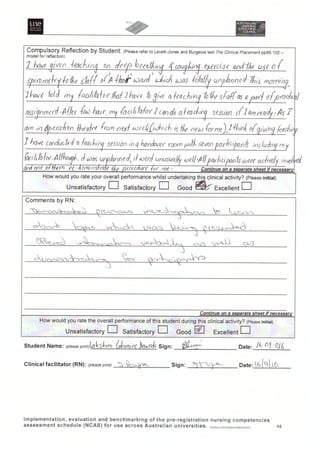 une
Compulsory Reflection by Student: (Please refer to Levett-Jones and Burgeois text The Clinical Placement pp95-102 –
model for reflection)
I have given teaching on deep breathing & coughing exercise and the use of
spirometry to the staff of 'A' floor ward which was totally unplanned this morning.
I have told my facilitator that I have to give a teaching to the staff as a part of practical
assignment. After few hour, my facilitator I can do a teaching session if I am ready. As I
am in operation theater from next week (which is the new for me), I think of giving teaching
I have conducted a teaching session in a handover room with seven participants including my
facilitator. Although it was unplanned, it went unusually well. All participants were actively involved
and one of them re-demonstrate the procedure for me.
Continue on a separate sheet if necessary
How would you rate your overall performance whilst undertaking this clinical activity? (Please Initial)
Unsatisfactory Satisfactory Good Excellent
Comments by RN:
Demonstrated previous investigation to learn
about topic which was being presented
Offered information verbally as well as
demonstrating for participants
Continue on a separate sheet if necessary
How would you rate the overall performance of this student during this clinical activity? (Please Initial)
Unsatisfactory Satisfactory Good Excellent
Student Name: (please print) Sign: Date:
Clinical facilitator (RN): (please print) Sign: Date: 16/9/16
Implementation, evaluation and benchmarking of the pre-registration nursing competencies
assessment schedule (NCAS) for use across Australian universities.